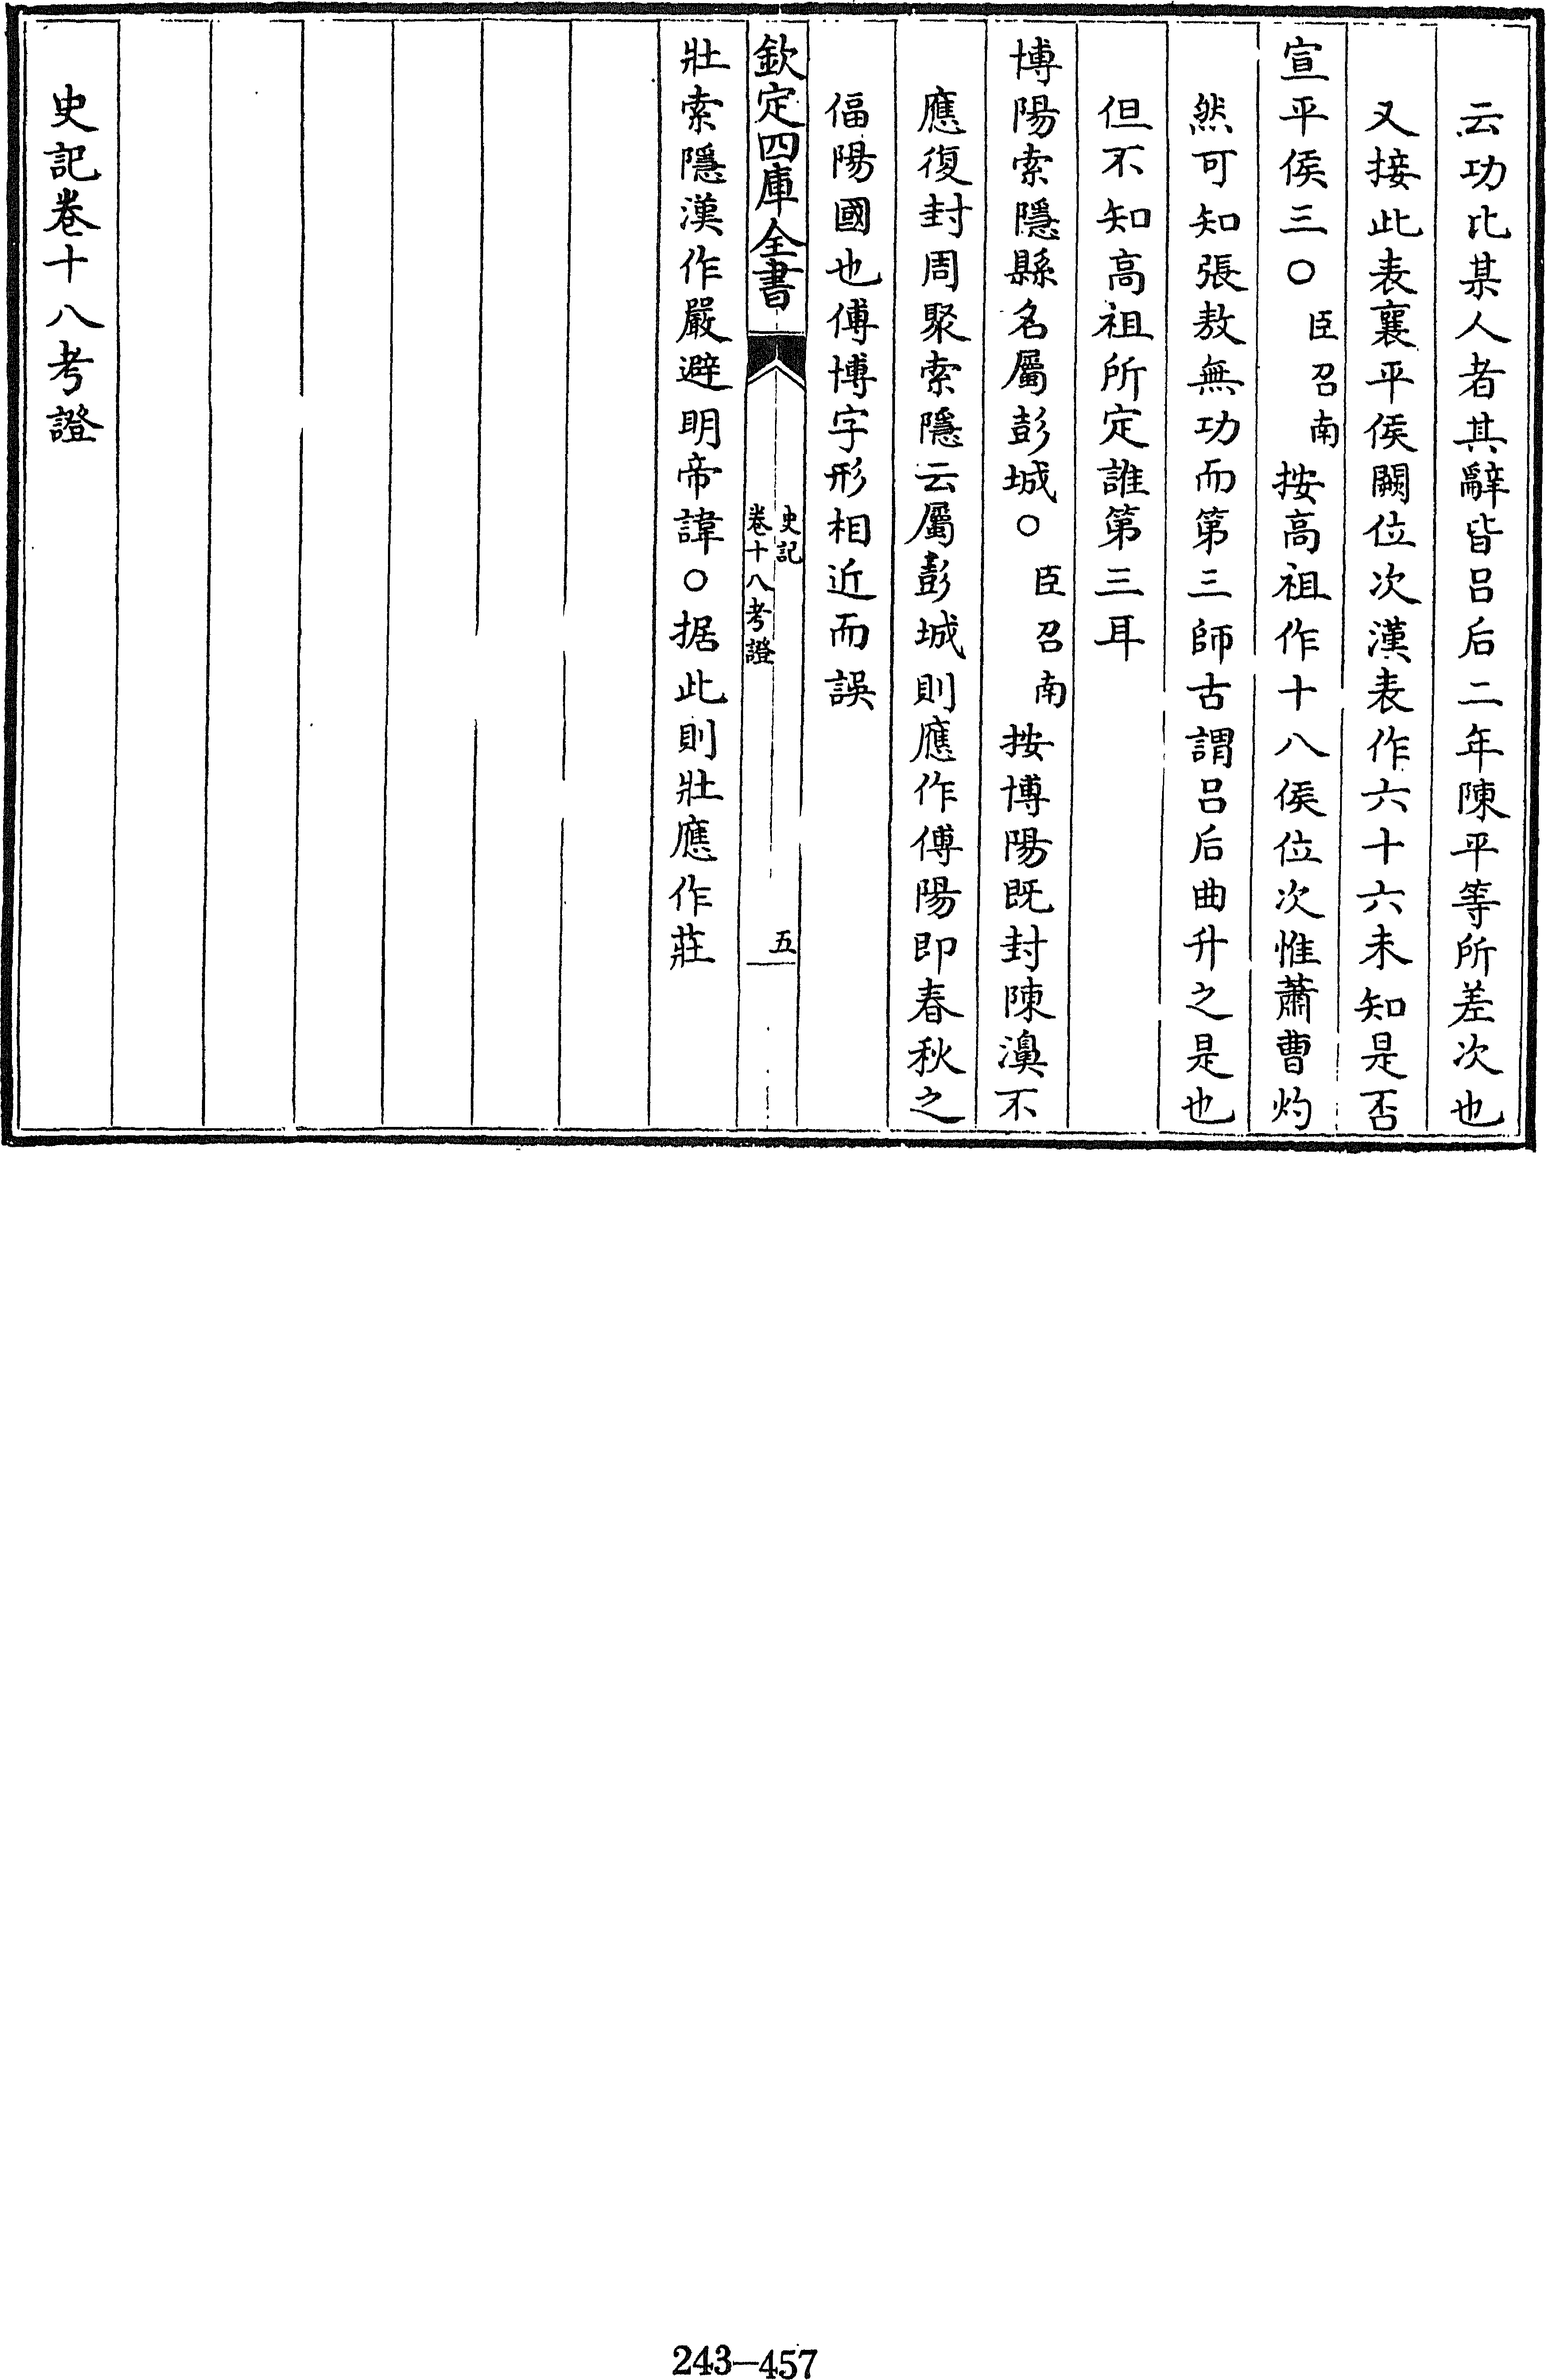 云功比某人者其辭皆呂后二年陳平等所差次也
又按此表襄平侯闕位次漢表作六十六未知是否
宣平侯三○臣召南按高祖作十八侯位次惟蕭曹灼
然可知張敖無功而第三師古謂呂后曲升之是也
但不知高祖所定誰第三耳
博陽索隱縣名屬彭城○臣召南按博陽既封陳濞不
應復封周聚索隱云屬彭城則應作傅陽即春秋之
偪陽國也傅博字形相近而誤
欽定四庫全書
史記
卷十八考證
五
壯索隱漢作嚴避明帝諱○据此則壯應作莊
史記卷十八考證
243-457